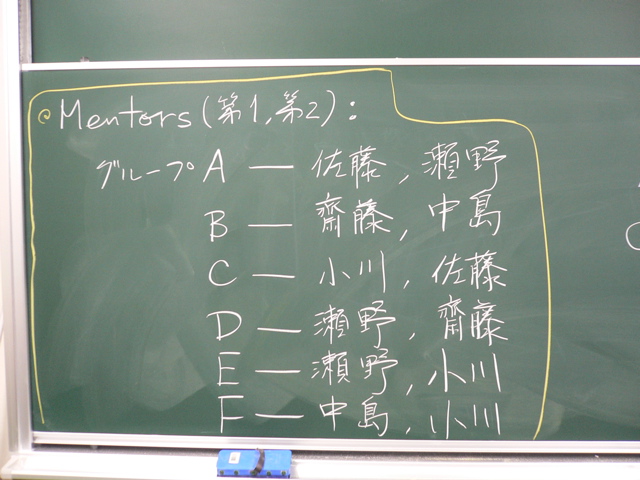 Mentors (第1, 第2):
グループ A — 佐藤, 瀬野
B — 齋藤, 中島
C — 小川, 佐藤
D — 瀬野, 齋藤
E — 瀬野, 小川
F — 中島, 小川